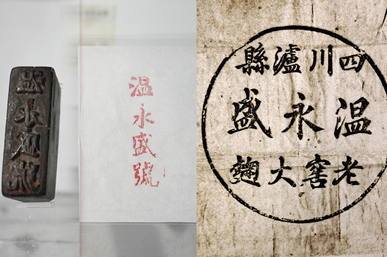 温永盛號
四川瀘縣
温永盛
老窖大麯